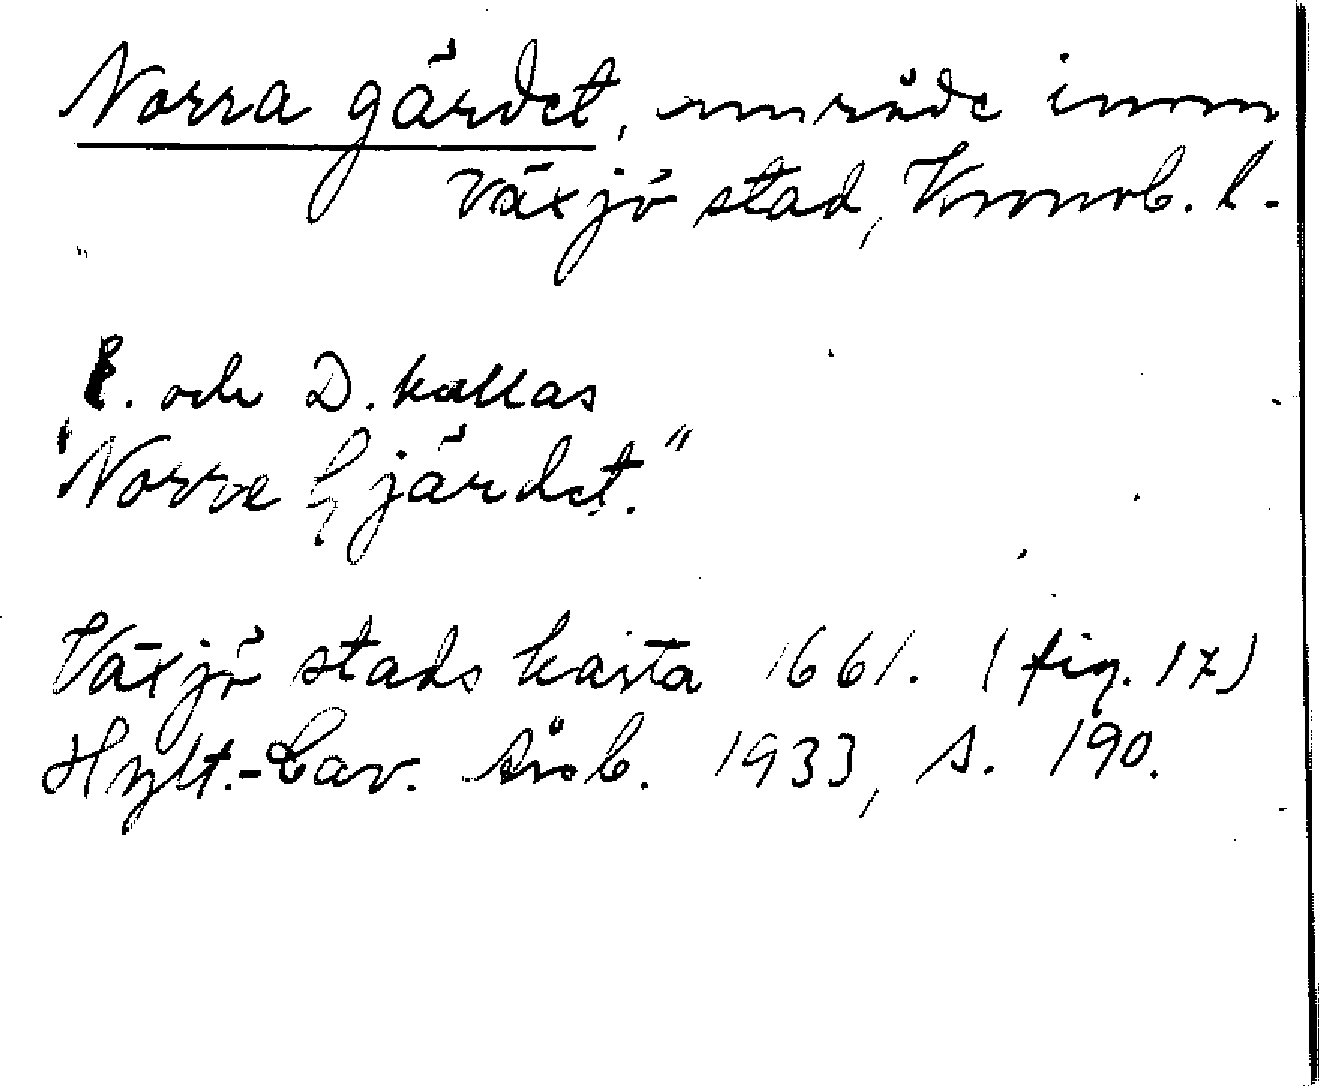 Norra gärdet, område inom
Växjö stad, Kronob. l.
C. och D. kallas
"Norre Gjärdet."
Växjö stads karta 1661. (fig. 17)
Hylt.-Cav. årsb. 1933, s. 190.